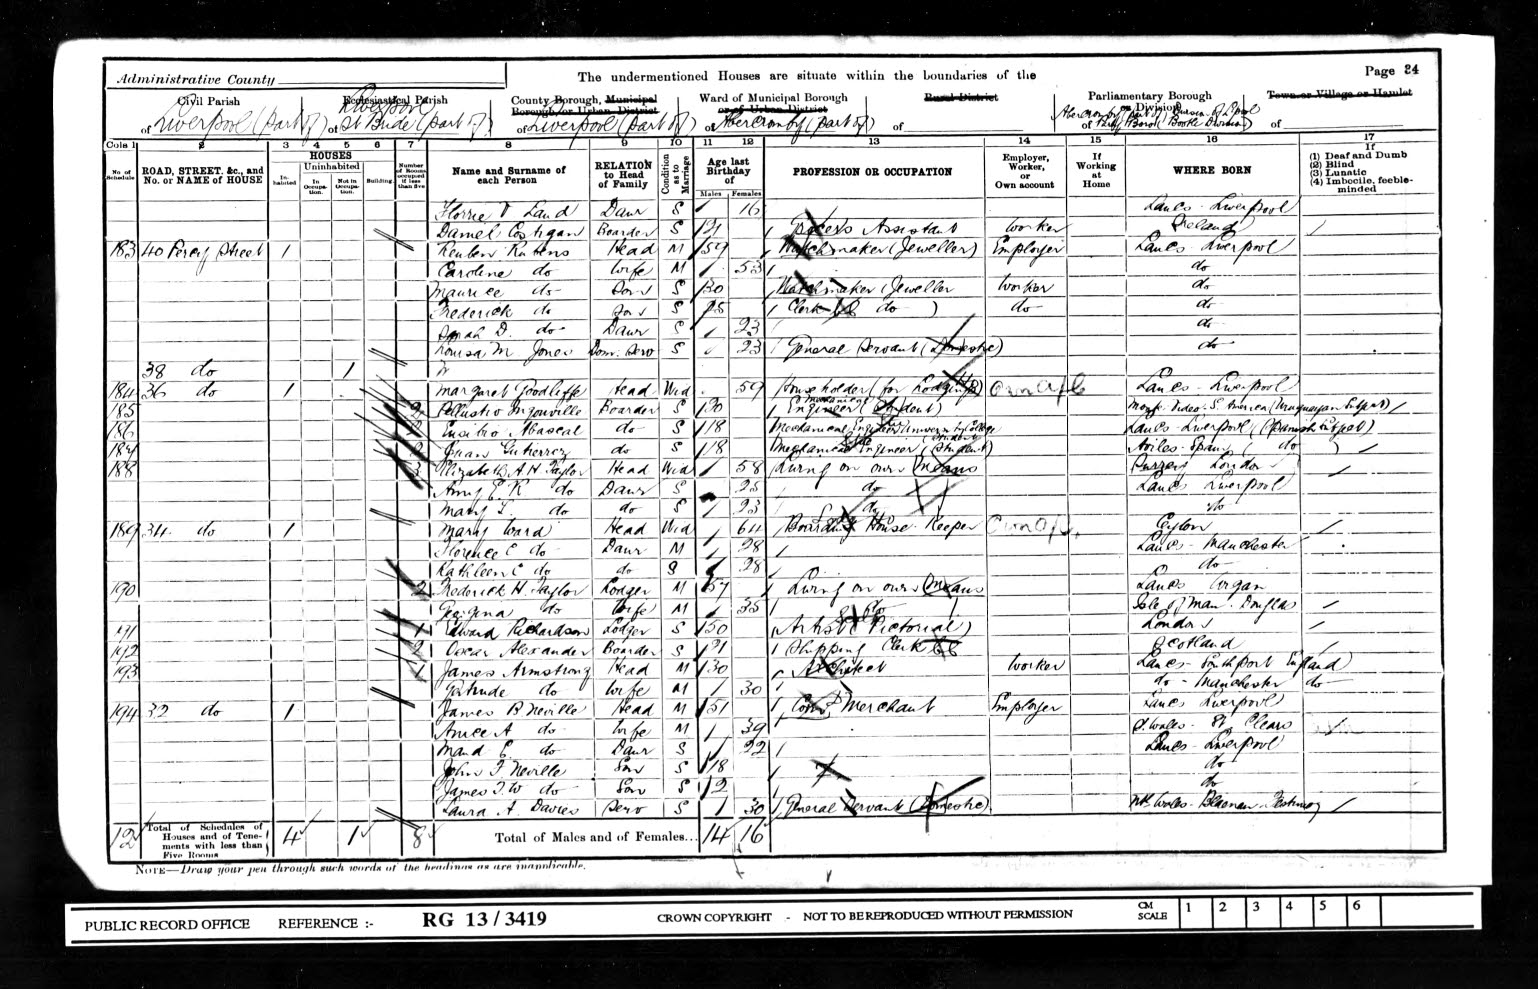 Administrative County
The undermentioned Houses are situate within the boundaries of the
Page 24
Civil Parish
Ecclesiastical Parish
County Borough, Municipal Borough, or Urban District
Ward of Municipal Borough or of Urban District
Rural District
Parliamentary Borough or Division
Town or Village or Hamlet
of Liverpool (part of)
of Liverpool St Bride (part of)
of Liverpool (part of)
of Abercromby (part of)
of
of
Cols 1 2 3 4 5 6 7 8 9 10 11 12 13 14 15 16 17
No. of Schedule
ROAD, STREET, &c., and No. or NAME of HOUSE
HOUSES
Inhabited
Uninhabited
In Occupation.
Not in Occupation.
Building.
Number of Rooms occupied if less than five
Name and Surname of each Person
RELATION to Head of Family
Condition as to Marriage
Age last Birthday of
Males Females
PROFESSION OR OCCUPATION
Employer, Worker, or Own account
If Working at Home
WHERE BORN
If
(1) Deaf and Dumb
(2) Blind
(3) Lunatic
(4) Imbecile, feeble-minded
Florrie V Land Daur S 16 Lancs - Liverpool
Daniel Costigan Boarder S 21 Assistant Worker Ireland
183 40 Percy Street 1 Reuben Rubens Head M 59 Watchmaker (Jeweller) Employer Lancs - Liverpool
Caroline do Wife M 53 do
Maurice do Son S 30 Watchmaker (Jeweller Worker do
Frederick do Son S 25 Clerk do ) do do
Sarah D. do Daur S 23 do
Louisa M Jones Dom. Serv S 23 General Servant (Domestic) do
38 do 1
184 36 do 1 Margaret Goodliffe Head Wid 59 Householder (for Lodgings) Own a/c Lancs - Liverpool
185 2 Ingouville Boarder S 20 Mechanical Engineer (Student) Monte Video S. America (Uruguayan Subject)
186 Abascal do S 18 Mechanical Engineer University College (Student) Lancs - Liverpool (Spanish subject)
187 Juan Gutierrez do S 18 Mechanical Engineer (Student) Aviles - Spain ( do )
188 3 Elizabeth A H Taylor Head Wid 58 Living on own Means London
Amy E. K do Daur S 25 do Lancs Liverpool
Mary L. do do S 23 do do
189 34 do 1 Mary Ward Head Wid 64 Boarding House Keeper Own a/c. Ceylon
Florence E do Daur M 28 Lancs - Manchester
Kathleen E do do S 28 do
190 2 Frederick H. Taylor Lodger M 57 Living on own Means Lancs Wigan
Georgina do Wife M 35 do Isle of Man. Douglas
191 1 Edward Richardson Lodger S 50 Artist (Pictorial) London
192 Oscar Alexander Boarder S 21 Shipping Clerk Scotland
193 James Armstrong Head M 30 Architect Worker Lancs - Southport England
Gertrude do Wife M 30 do - Manchester do
194 32 do 1 James B Neville Head M 51 Merchant Employer Lancs Liverpool
Annie A do Wife M 39 S. Wales - St Clears
Maud E do Daur S 22 Lancs - Liverpool
John T Neville Son S 18 do
James T. W do Son S 12 do
Laura A Davies Serv S 30 General Servant (Domestic) Nth Wales - Blaenau Festiniog
12 Total of Schedules of Houses and of Tenements with less than Five Rooms 4 1 8 Total of Males and of Females... 14 16
NOTE—Draw your pen through such words of the headings as are inapplicable.
PUBLIC RECORD OFFICE REFERENCE :- RG 13 / 3419 CROWN COPYRIGHT - NOT TO BE REPRODUCED WITHOUT PERMISSION CM SCALE 1 2 3 4 5 6